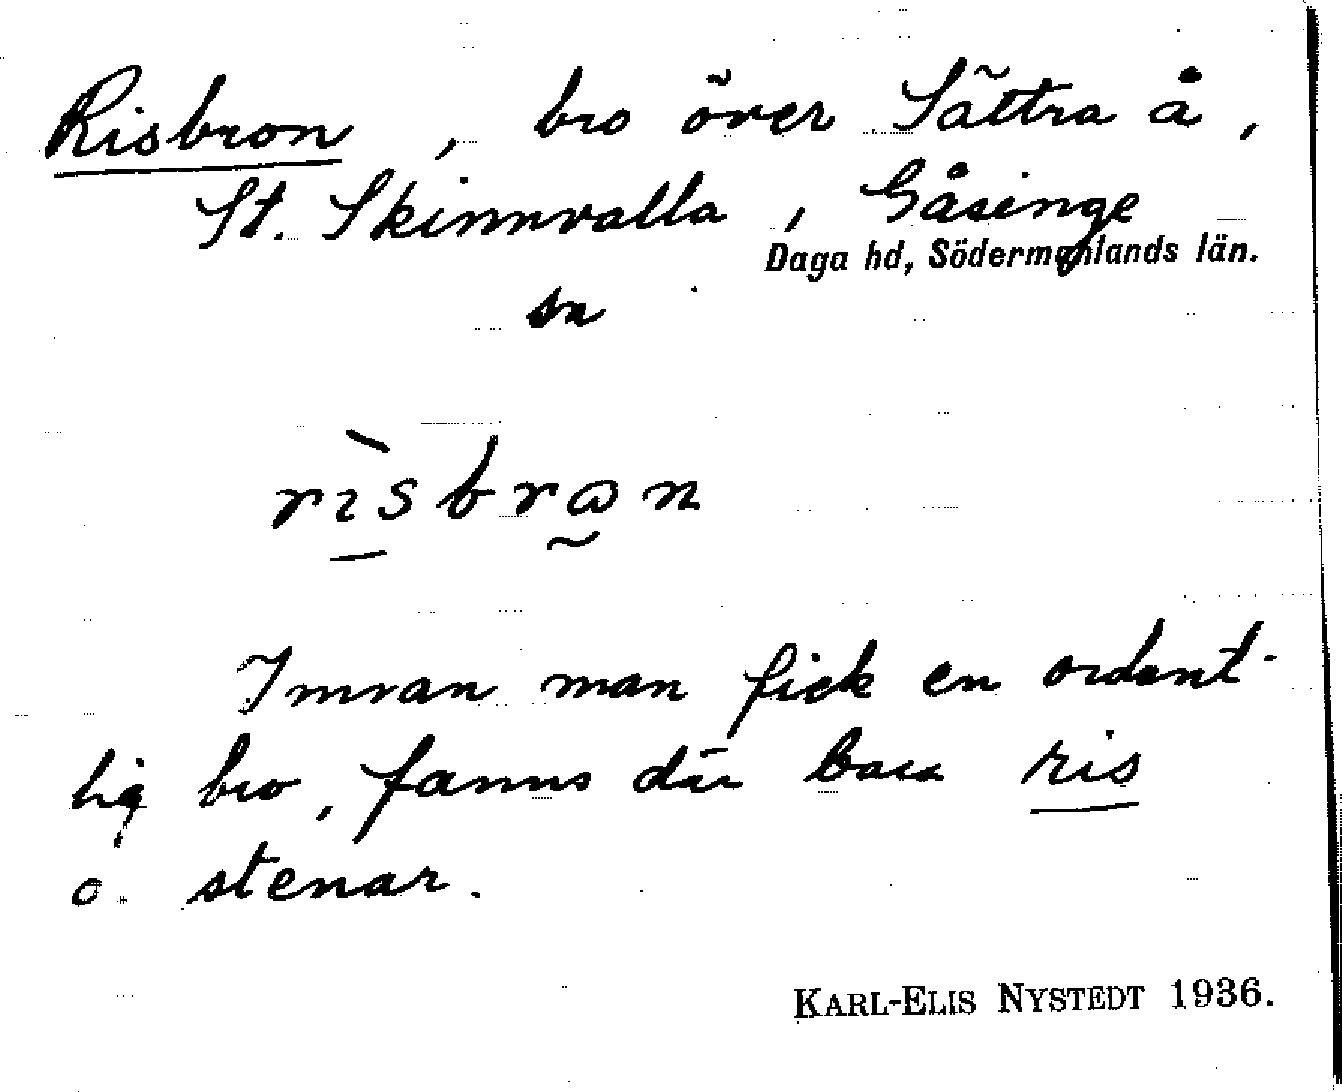 Risbron, bro över Sättra å,
St. Skinnvalla, Gåsinge
Daga hd, Södermanlands län.
sn
rìsbrωn
Innan man fick en ordent-
lig bro, fanns där bara ris
o. stenar.
KARL-ELIS NYSTEDT 1936.